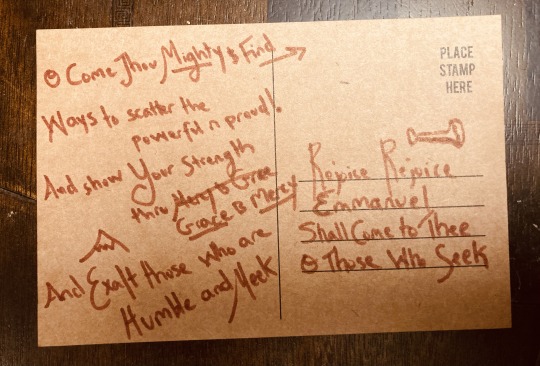 O Come Thou Mighty & Find
Ways to scatter the
powerful n proud.
And show Your Strength
thru Mercy & Grace
Grace & Mercy
And Exalt those who are
Humble and Meek
PLACE
STAMP
HERE
Rejoice Rejoice
Emmanuel
Shall Come to Thee
O Those Who Seek